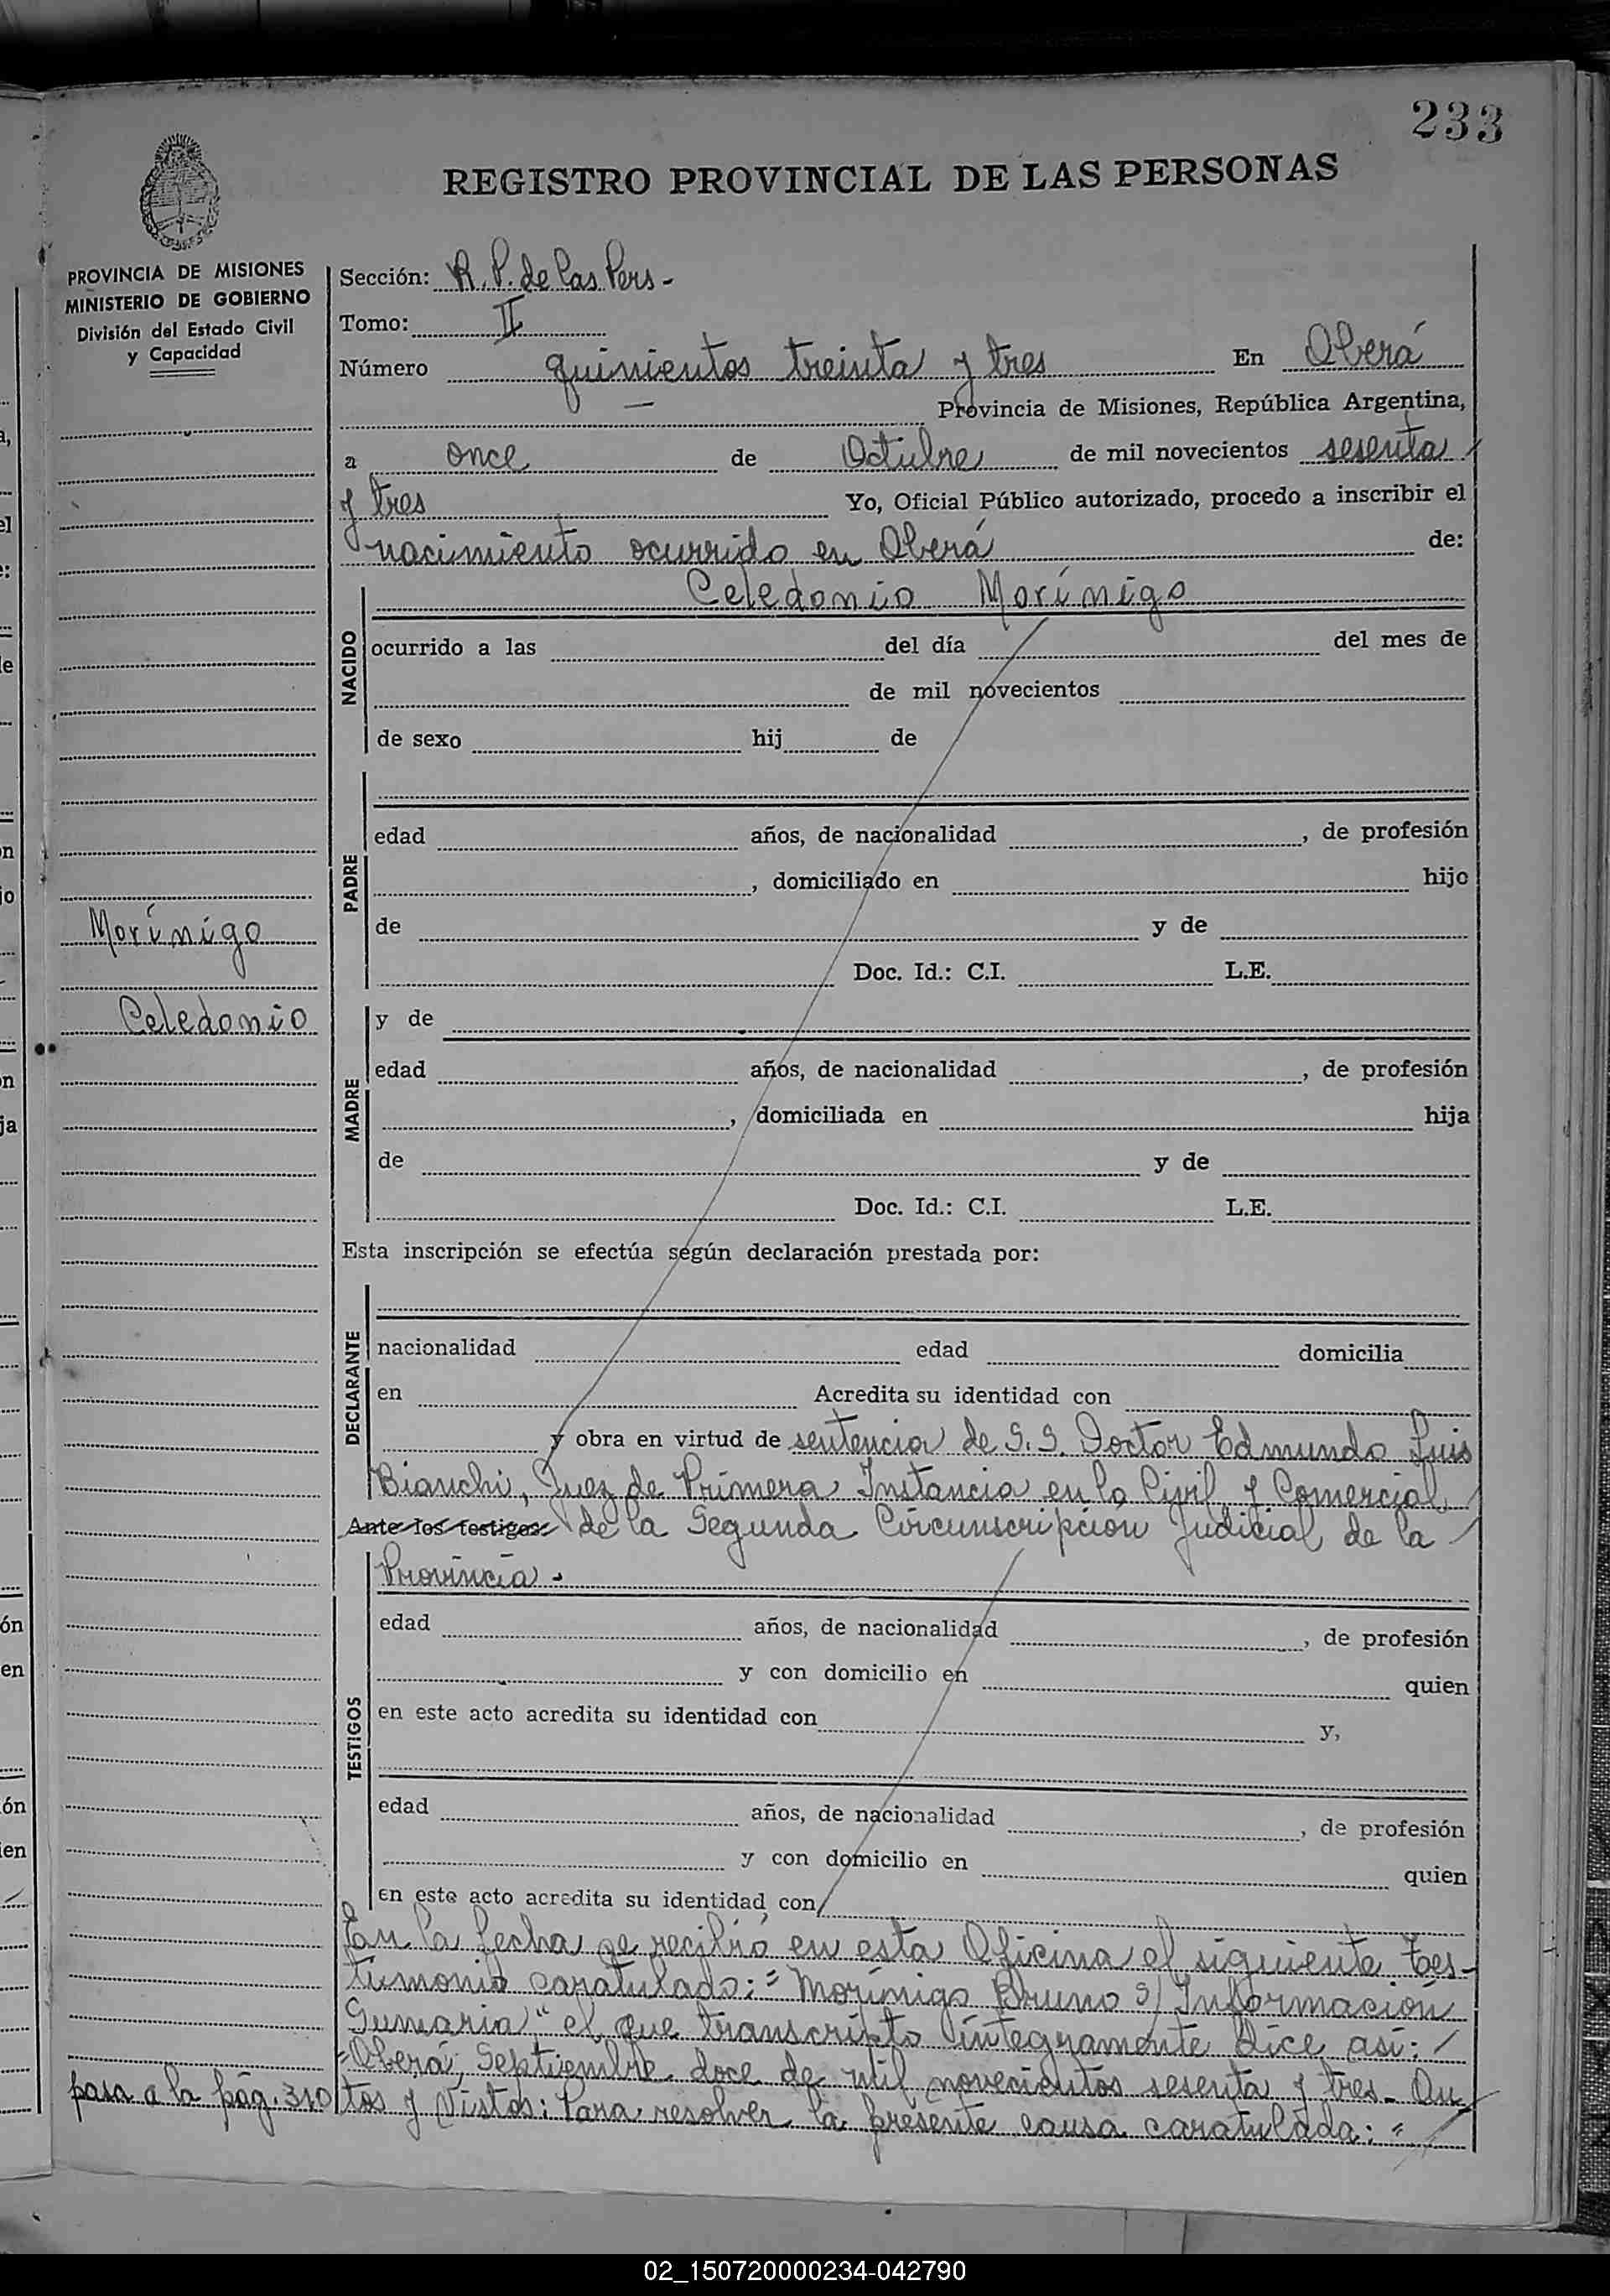 233
REGISTRO PROVINCIAL DE LAS PERSONAS
PROVINCIA DE MISIONES
MINISTERIO DE GOBIERNO
División del Estado Civil
y Capacidad
Sección: R. P. de las Pers-
Tomo: II
Número quinientos treinta y tres En Oberá
Provincia de Misiones, República Argentina,
a once de Octubre de mil novecientos sesenta
y tres Yo, Oficial Público autorizado, procedo a inscribir el
nacimiento ocurrido en Oberá de:
Celedonio Morínigo
NACIDO
ocurrido a las del día del mes de
de mil novecientos
de sexo hij de
PADRE
edad años, de nacionalidad , de profesión
, domiciliado en hijo
de y de
Doc. Id.: C.I. L.E.
Morínigo
Celedonio
MADRE
y de
edad años, de nacionalidad , de profesión
, domiciliada en hija
de y de
Doc. Id.: C.I. L.E.
Esta inscripción se efectúa según declaración prestada por:
DECLARANTE
nacionalidad edad domicilia
en Acredita su identidad con
y obra en virtud de sentencia de S. S. Doctor Edmundo Luis
Bianchi, Juez de Primera Instancia en lo Civil y Comercial
Ante los testigos: de la Segunda Circunscripción Judicial de la
Provincia.
TESTIGOS
edad años, de nacionalidad , de profesión
y con domicilio en quien
en este acto acredita su identidad con y,
edad años, de nacionalidad , de profesión
y con domicilio en quien
en este acto acredita su identidad con
En la fecha se recibió en esta Oficina el siguiente tes-
timonio caratulado: "Morínigo Bruno s/ Información
Sumaria," el que transcripto íntegramente dice así:
"Oberá, Septiembre doce de mil novecientos sesenta y tres- Au
tos y Vistos: Para resolver la presente causa caratulada: "
pasa a la pág. 310
02_150720000234-042790